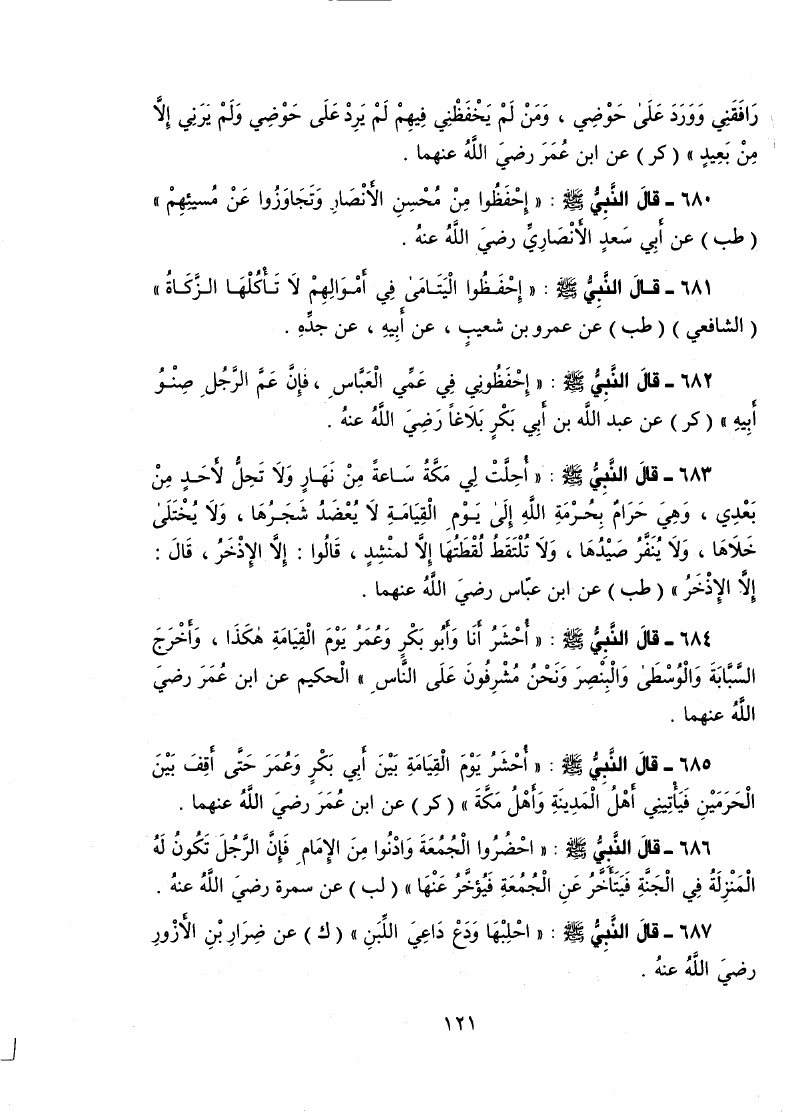 رَافَقَنِي وَوَرَدَ عَلَى حَوْضِي ، وَمَنْ لَمْ يَحْفَظْنِي فِيهِمْ لَمْ يَرِدْ عَلَى حَوْضِي وَلَمْ يَرَنِي إِلَّا
مِنْ بَعِيدٍ » ( كر ) عن ابن عُمَرَ رضيَ اللَّهُ عنهما .
٦٨٠ ـ قالَ النَّبِيُّ ﷺ : « إِحْفَظُوا مِنْ مُحْسِنِ الأَنْصَارِ وَتَجَاوَزُوا عَنْ مُسِيئِهِمْ »
( طب ) عن أَبي سَعدٍ الأَنْصَارِيِّ رضيَ اللَّهُ عنهُ .
٦٨١ ـ قالَ النَّبِيُّ ﷺ : « إِحْفَظُوا الْيَتَامَى فِي أَمْوَالِهِمْ لَا تَأْكُلُهَا الزَّكَاةُ »
( الشافعي ) ( طب ) عن عمرو بن شعيبٍ ، عن أَبيهِ ، عن جدِّهِ .
٦٨٢ ـ قالَ النَّبِيُّ ﷺ : « إِحْفَظُونِي فِي عَمِّي الْعَبَّاسِ ، فَإِنَّ عَمَّ الرَّجُلِ صِنْوُ
أَبِيهِ » ( كر ) عن عبد الله بن أَبي بَكْرٍ بَلَاغاً رَضِيَ اللَّهُ عنهُ .
٦٨٣ ـ قالَ النَّبِيُّ ﷺ : « أُحِلَّتْ لِي مَكَّةُ سَاعَةً مِنْ نَهَارٍ وَلَا تَحِلُّ لأَحَدٍ مِنْ
بَعْدِي ، وَهِيَ حَرَامٌ بِحُرْمَةِ اللَّهِ إِلَى يَوْمِ الْقِيَامَةِ لَا يُعْضَدُ شَجَرُهَا ، وَلَا يُخْتَلَى
خَلَاهَا ، وَلَا يُنَفَّرُ صَيْدُهَا ، وَلَا تُلْتَقَطُ لُقَطَتُهَا إِلَّا لمُنْشِدٍ ، قَالُوا : إِلَّا الإِذْخَرُ ، قَالَ :
إِلَّا الإِذْخَرُ » ( طب ) عن ابن عبَّاس رضيَ اللَّهُ عنهما .
٦٨٤ ـ قالَ النَّبِيُّ ﷺ : « أُحْشَرُ أَنَا وَأَبُو بَكْرٍ وَعُمَرُ يَوْمَ الْقِيَامَةِ هٰكَذَا ، وَأَخْرَجَ
السَّبَّابَةَ وَالْوُسْطَى وَالْبِنْصِرَ وَنَحْنُ مُشْرِفُونَ عَلَى النَّاسِ » الْحكيم عن ابن عُمَرَ رضيَ
اللَّهُ عنهما .
٦٨٥ ـ قالَ النَّبِيُّ ﷺ : « أُحْشَرُ يَوْمَ الْقِيَامَةِ بَيْنَ أَبِي بَكْرٍ وَعُمَرَ حَتَّى أَقِفَ بَيْنَ
الْحَرَمَيْنِ فَيَأْتِينِي أَهْلُ الْمَدِينَةِ وَأَهْلُ مَكَّةَ » ( كر ) عن ابن عُمَرَ رضيَ اللَّهُ عنهما .
٦٨٦ ـ قالَ النَّبِيُّ ﷺ : « احْضُرُوا الْجُمُعَةَ وَادْنُوا مِنَ الإِمَامِ فَإِنَّ الرَّجُلَ تَكُونُ لَهُ
الْمَنْزِلَةُ فِي الْجَنَّةِ فَيَتَأَخَّرُ عَنِ الْجُمُعَةِ فَيُؤَخَّرُ عَنْهَا » ( لب ) عن سمرة رضيَ اللَّهُ عنهُ .
٦٨٧ ـ قالَ النَّبِيُّ ﷺ : « احْلِبْهَا وَدَعْ دَاعِيَ اللَّبَنِ » ( ك ) عن ضِرَارِ بْنِ الأَزْوَرِ
رضيَ اللَّهُ عنهُ .
١٢١